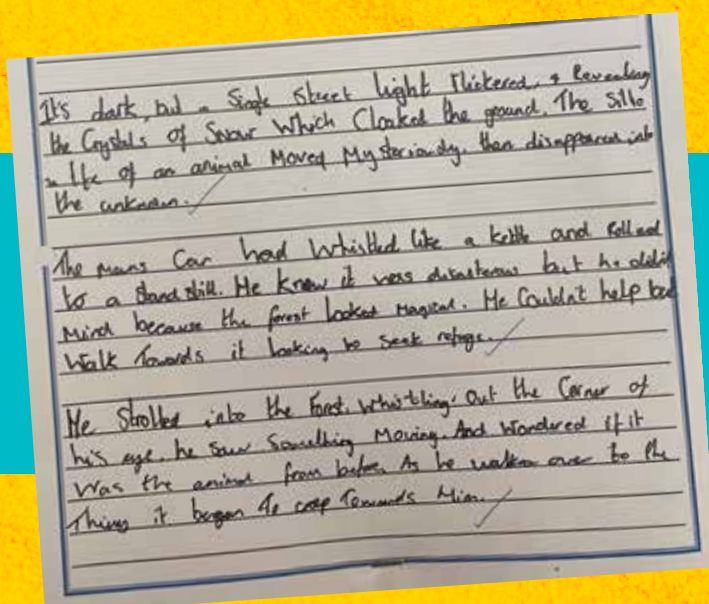 It's dark, but a Single Street light flickered, & Revealing
the Crystals of Snow Which Cloaked the ground. The Sillo
u lte of an animal Moved Mysteriously, then disappeared into
the unknown.
The mans Car had Whistled like a kettle and Rolled
to a standstill. He knew it was disasterous but he didn't
Mind because the forest looked Magical. He Couldn't help but
Walk Towards it looking to Seek refuge.
He Strolled into the Forest, Whistling. Out the Corner of
his eye, he saw Something Moving. And Wondered if it
Was the animal from before. As he walked over to the
Thing it began To creep Towards Him.